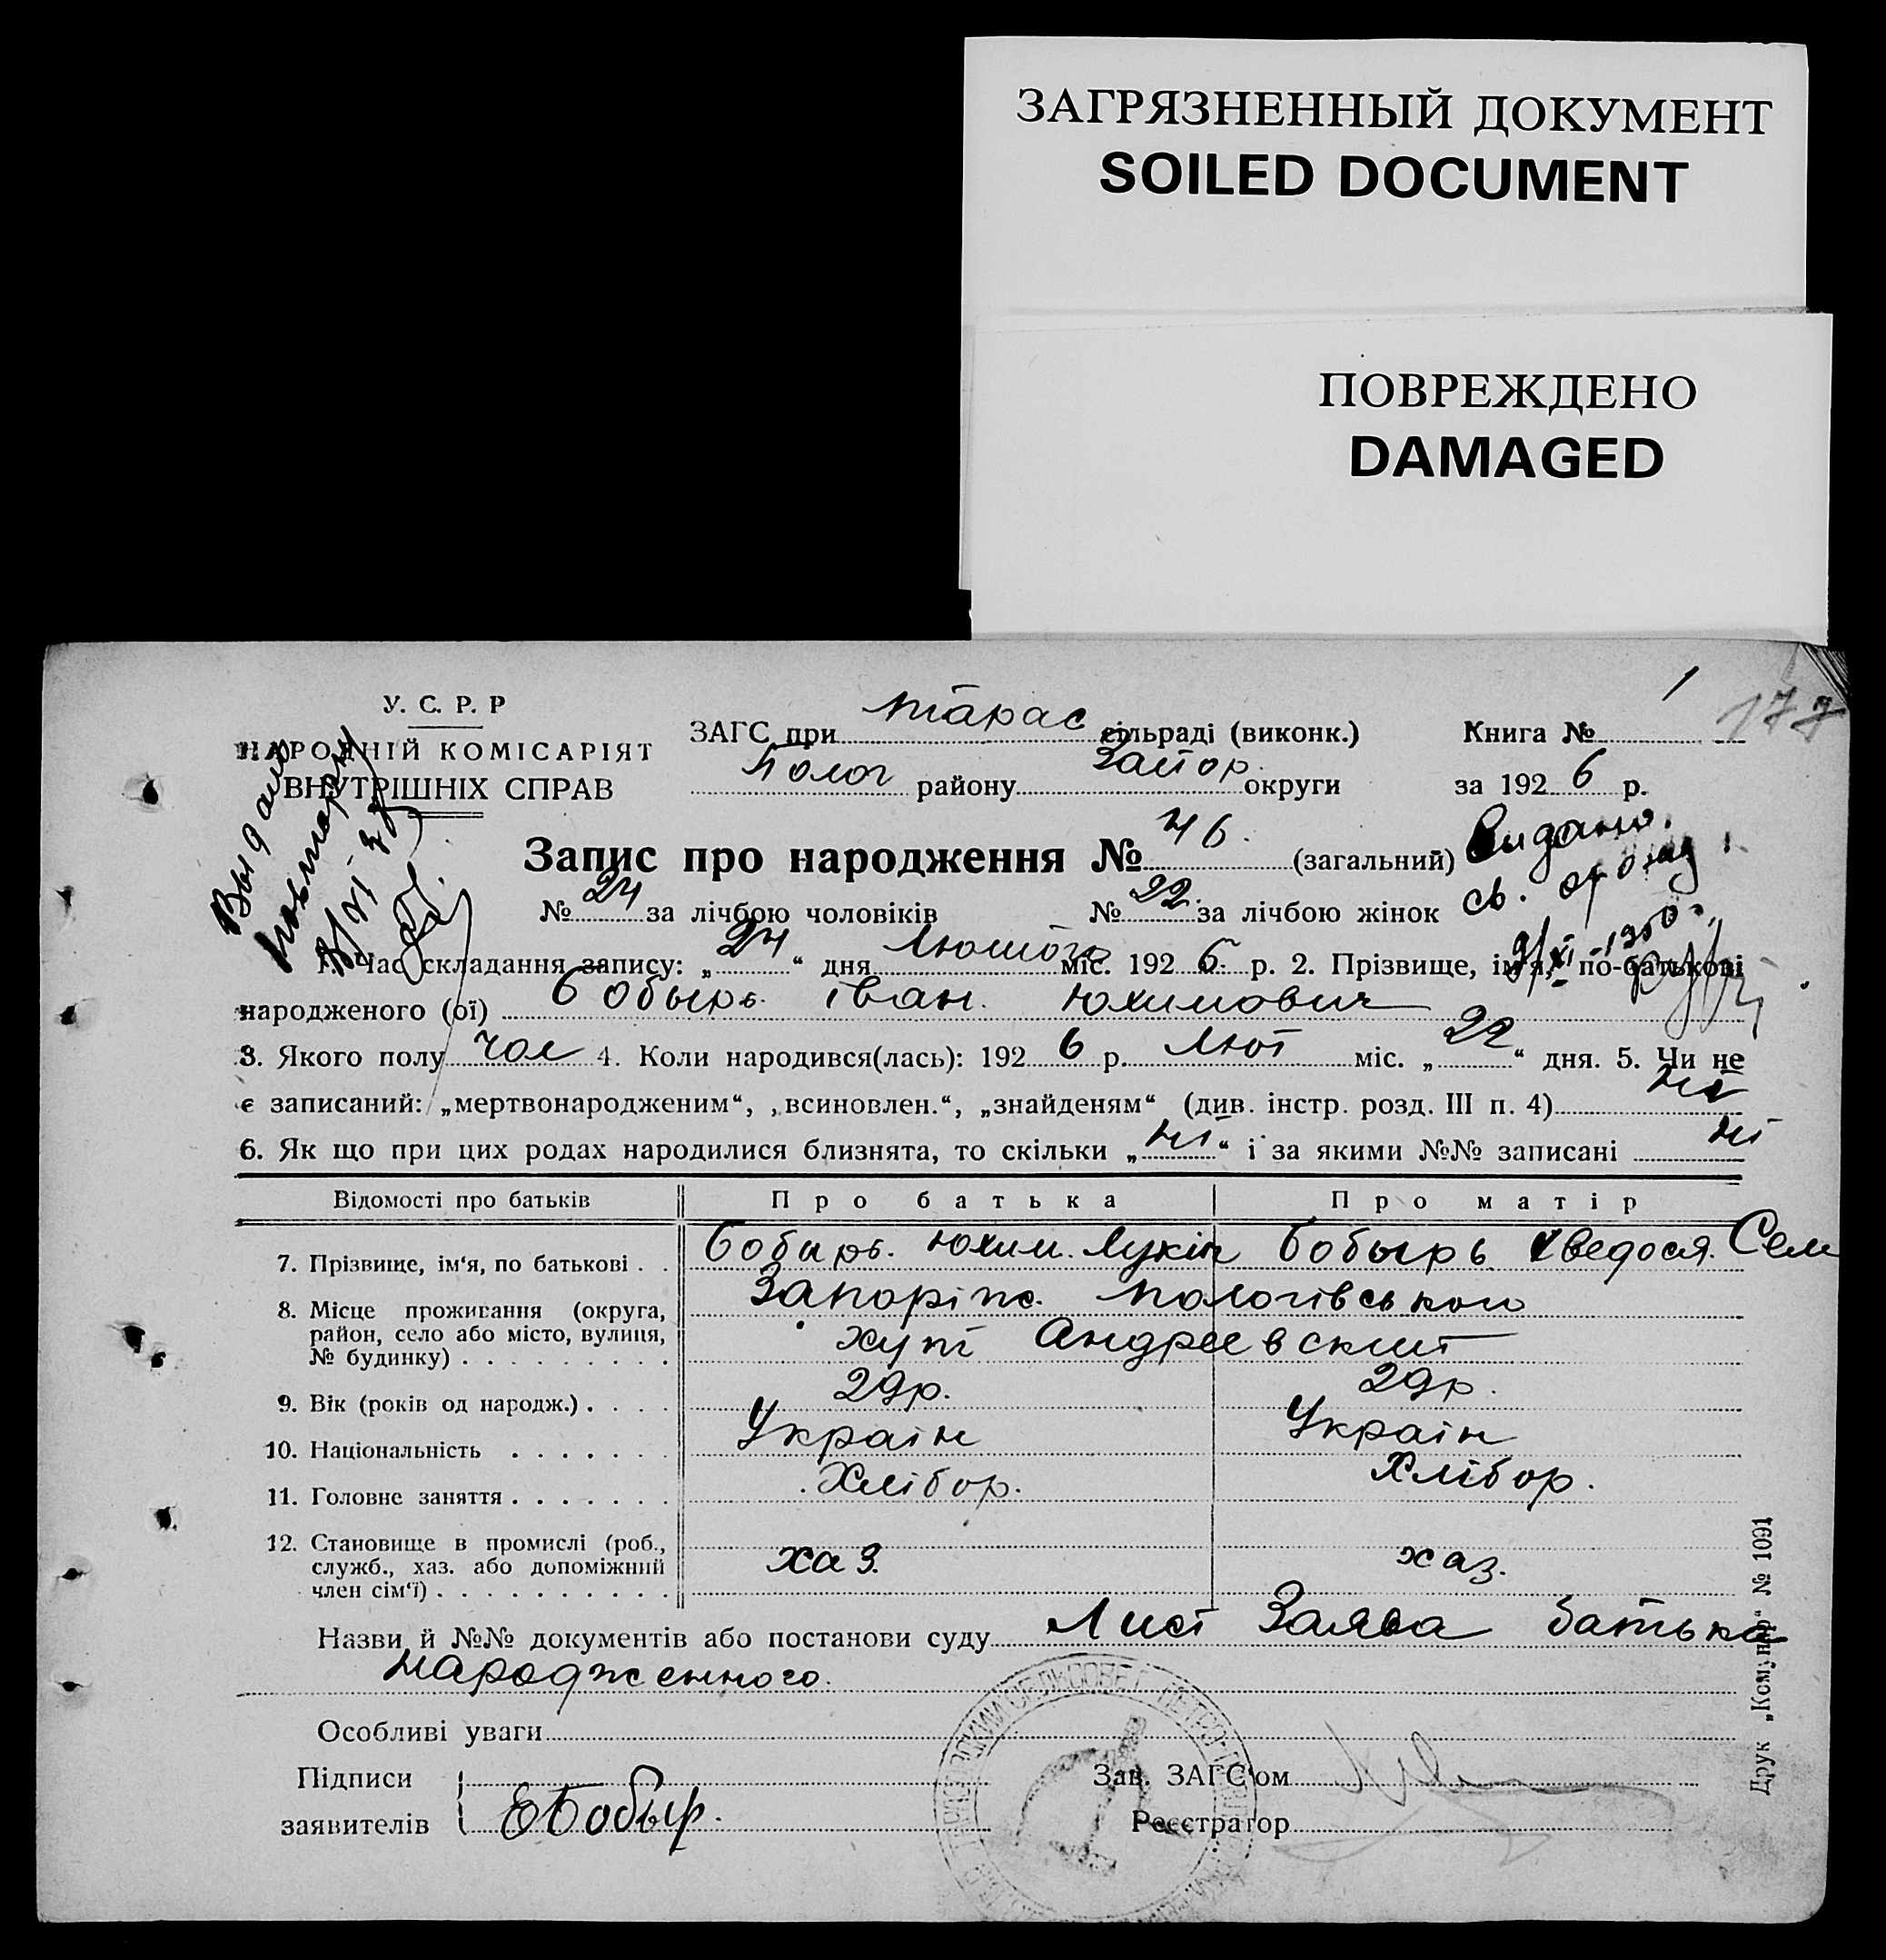 ЗАГРЯЗНЕННЫЙ ДОКУМЕНТ
SOILED DOCUMENT
ПОВРЕЖДЕНО
DAMAGED
У. С. Р. Р
НАРОДНІЙ КОМІСАРІЯТ
ВНУТРІШНІХ СПРАВ
177
ЗАГС при Тарас сільраді (виконк.) Книга № 1
Полог району Запор. округи за 1926 р.
Запис про народження № 46. (загальний) Видано
№ 24 за лічбою чоловіків № 22. за лічбою жінок св.
1. Час складання запису: „24“ дня Лютого міс. 1926 р. 2. Прізвище, ім'я, по-батькові
народженого (ої) Бобырь Іван Юхимович
3. Якого полу чол 4. Коли народився(лась): 1926 р. Лют міс. „22“ дня. 5. Чи не
є записаний: „мертвонародженим“, „всиновлен.“, „знайденям“ (див. інстр. розд. III п. 4) ні
6. Як що при цих родах народилися близнята, то скільки „ні“ і за якими №№ записані ні
Відомості про батьків Про батька Про матір
7. Прізвище, ім'я, по батькові . . Бобырь. Юхим. Лукін Бобырь Хведося. Сем
8. Місце проживання (округа, район, село або місто, вулиця, № будинку) . . . . . . . . . Запоріж. Пологівського
хут Андреевский
9. Вік (років од народж.) . . . . 29р. 29р.
10. Національність . . . . . . . Українк Українк
11. Головне заняття . . . . . . . Хлібор. Хлібор.
12. Становище в промислі (роб., служб., хаз. або допоміжний член сім'ї) . . . . . . . . . . хаз. хаз.
Назви й №№ документів або постанови суду Лист Заява батька
народженного.
Особливі уваги
Підписи
заявителів ЕБобыр.
Зав. ЗАГС'ом
Реєстратор
Друк „Комунар“ № 1091
Выдано